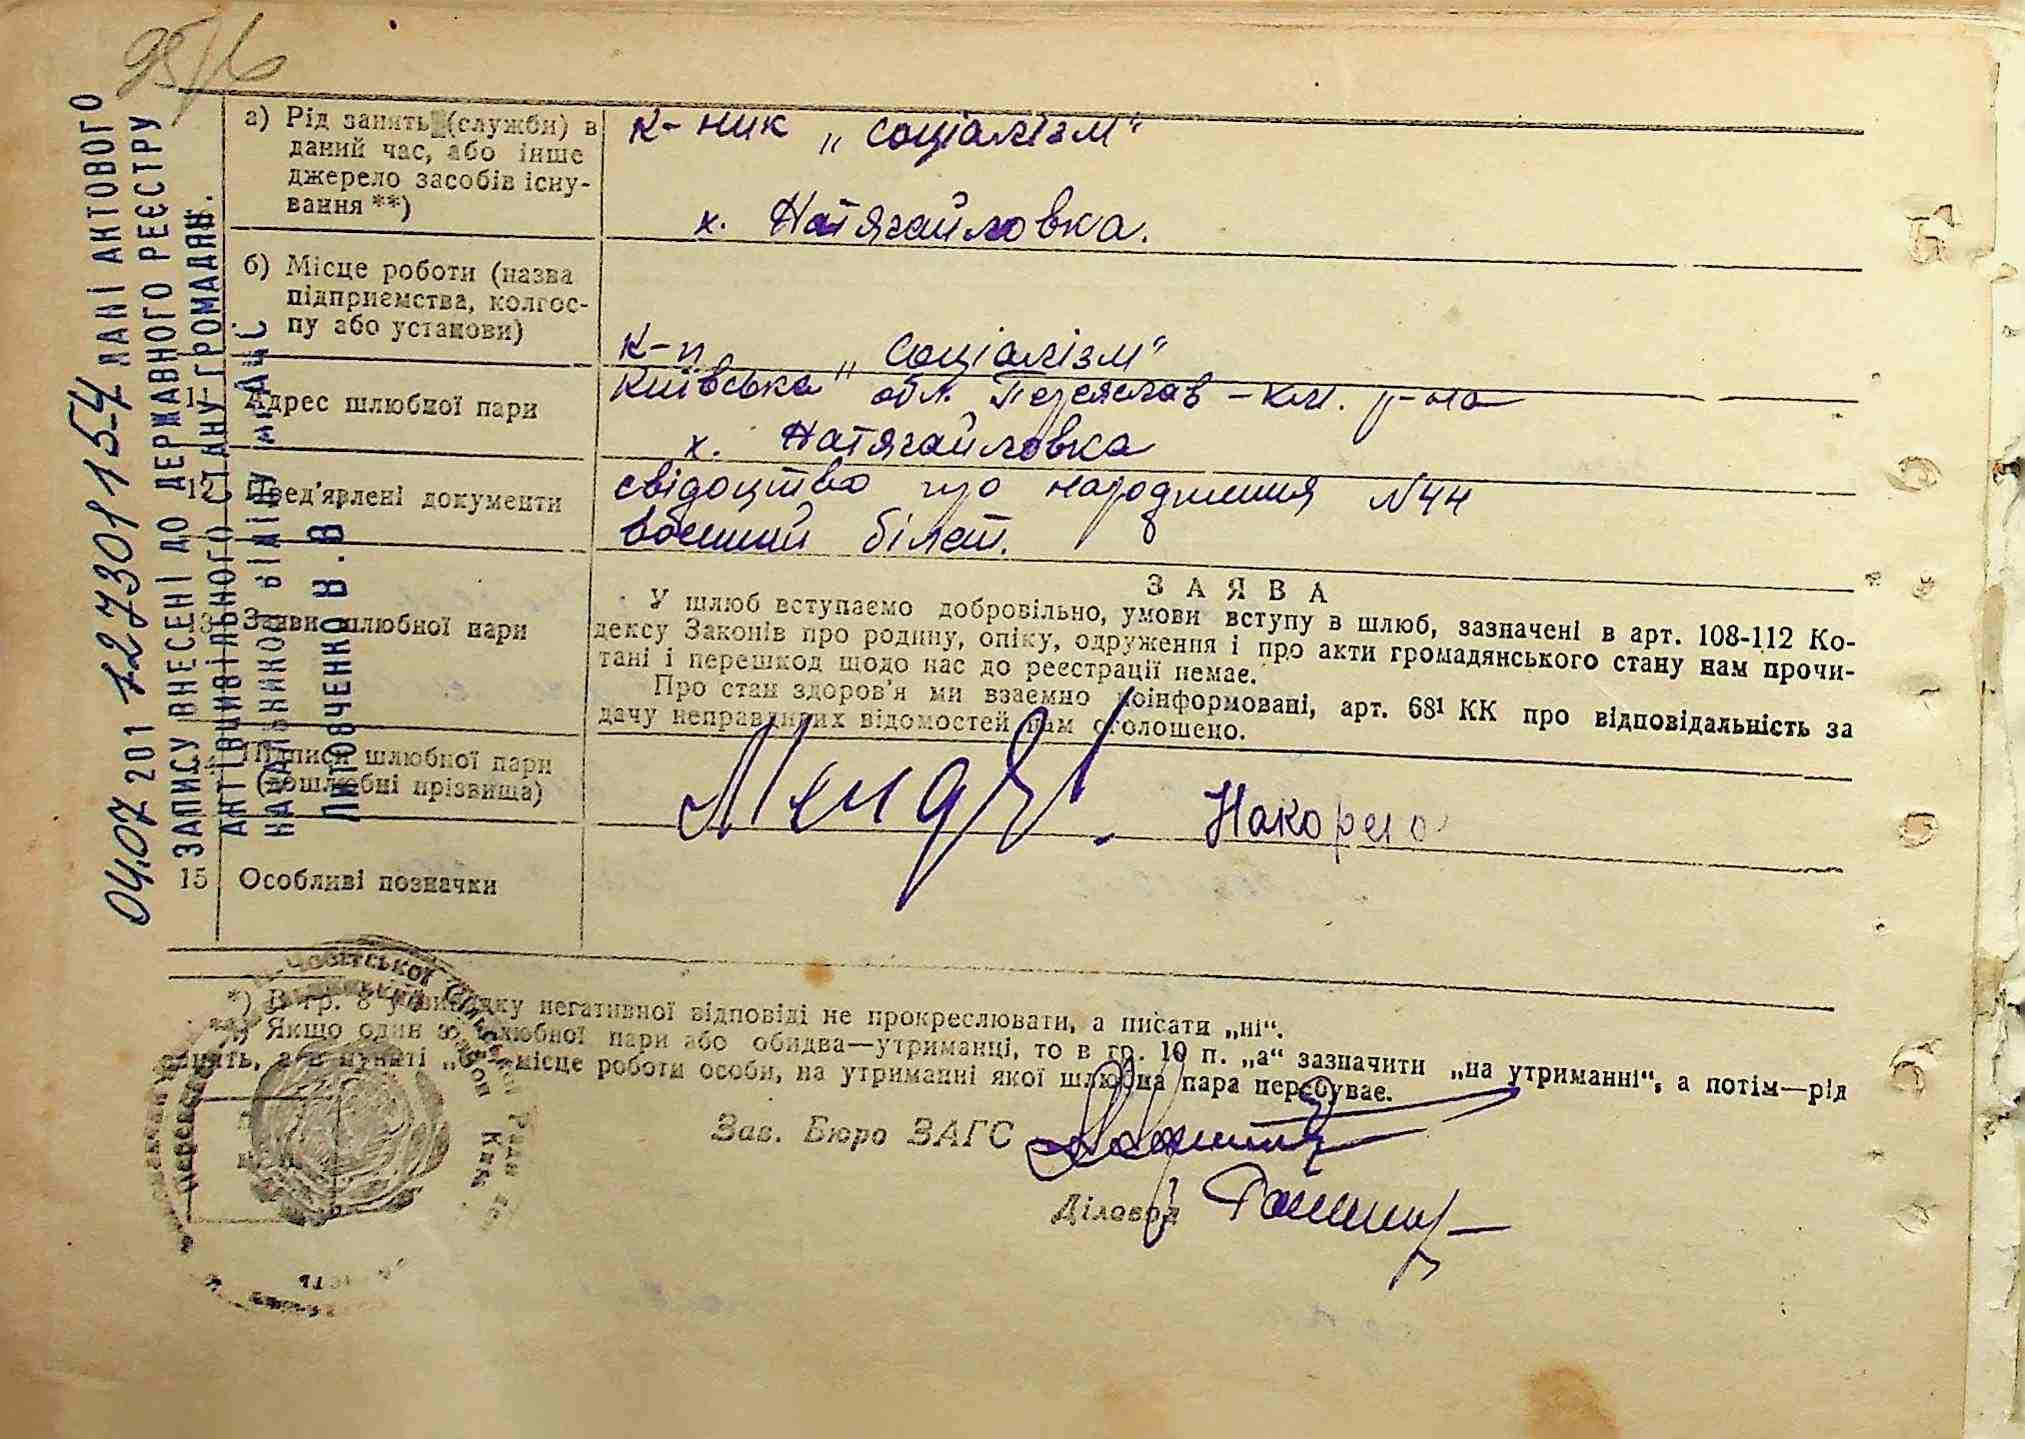 95/16
а) Рід занять (служби) в
даний час, або інше
джерело засобів існу-
вання **)
к-ник „соціалізм"
х. Натягайловка.
б) Місце роботи (назва
підприємства, колгос-
пу або установи)
к-п „соціалізм"
11 Адрес шлюбної пари
Київська обл. Переяслав-Хм. р-на
х. Натягайловка
12 Пред'явлені документи
свідоцтво про народження N44
воєнний білет.
Заяви шлюбної пари
З А Я В А
У шлюб вступаємо добровільно, умови вступу в шлюб, зазначені в арт. 108-112 Ко-
дексу Законів про родину, опіку, одруження і про акти громадянського стану нам прочи-
тані і перешкод щодо нас до реєстрації немає.
Про стан здоров'я ми взаємно поінформовані, арт. 68¹ КК про відповідальність за
дачу неправдивих відомостей нам оголошено.
Підписи шлюбної пари
(дошлюбні прізвища)
15 Особливі позначки
*) В гр. 8 у випадку негативної відповіді не прокреслювати, а писати „ні".
**) Якщо один з шлюбної пари або обидва—утриманці, то в гр. 10 п. „а" зазначити „на утриманні", а потім—рід
занять, а в пункті „б" місце роботи особи, на утриманні якої шлюбна пара перебуває.
Зав. Бюро ЗАГС
Діловод
04.07 201 ДАНІ АКТОВОГО
ЗАПИСУ ВНЕСЕНІ ДО ДЕРЖАВНОГО РЕЄСТРУ
АКТІВ ЦИВІЛЬНОГО СТАНУ ГРОМАДЯН.
ЛИТОВЧЕНКО В.В